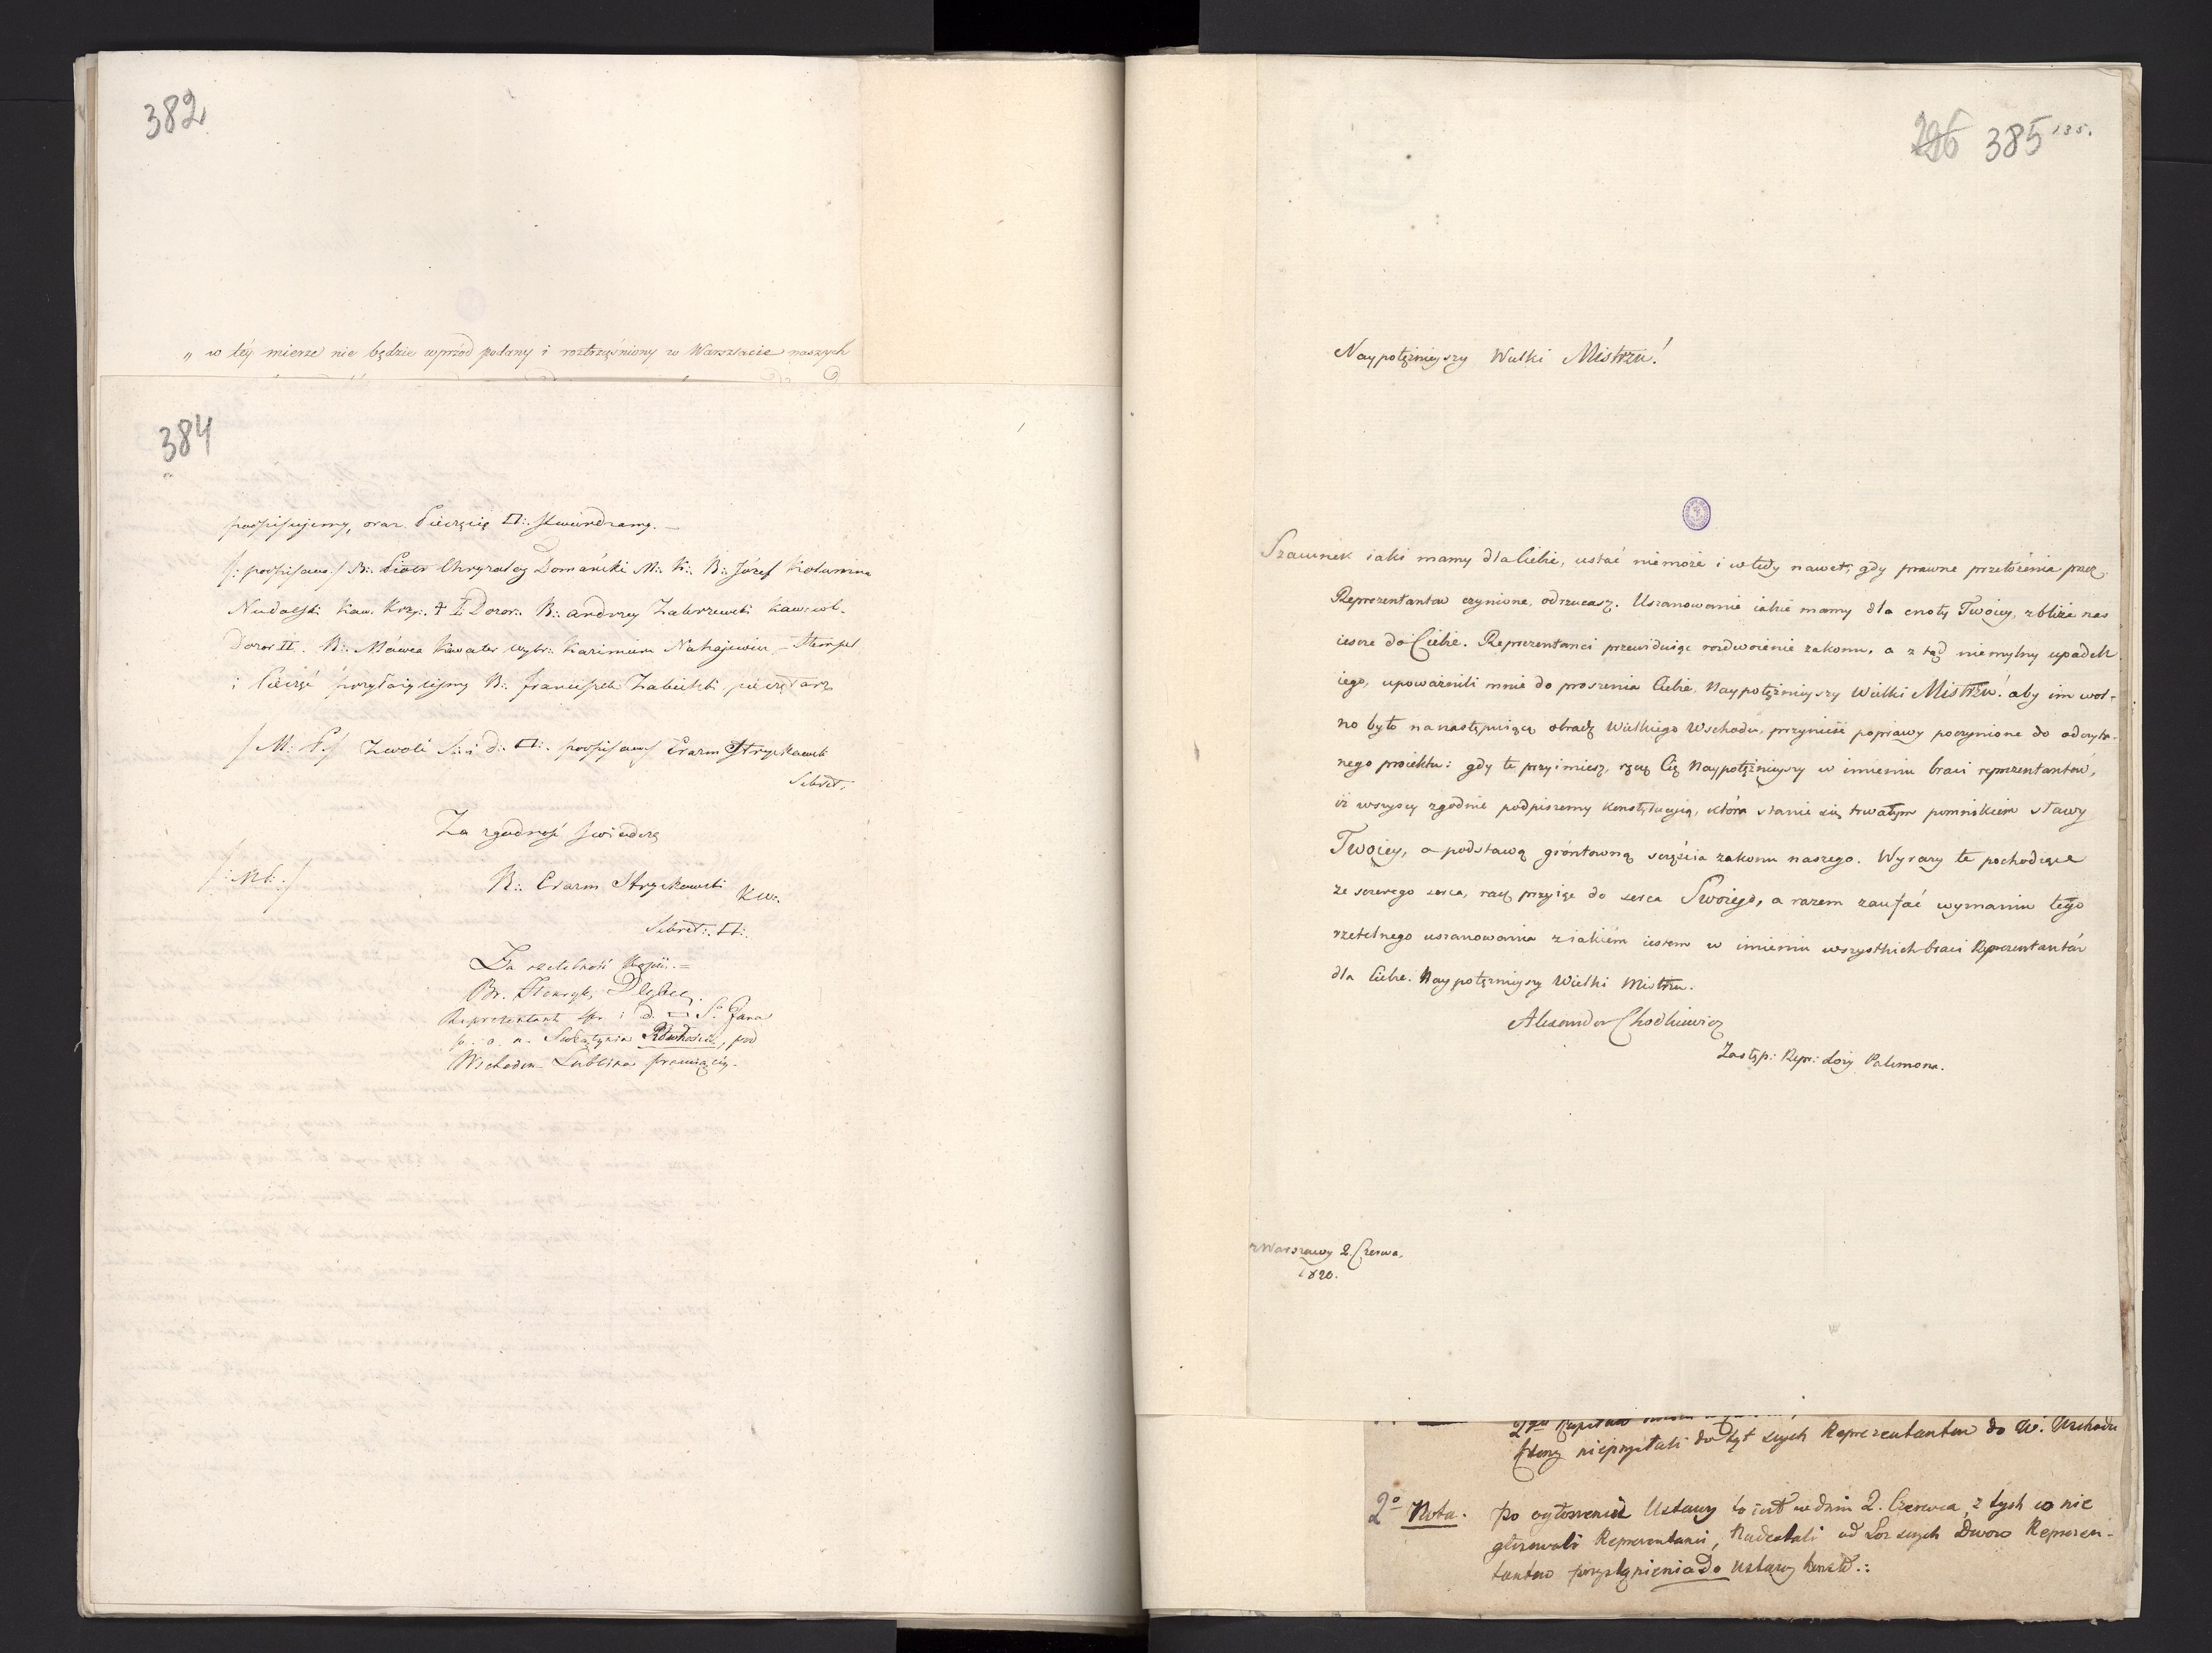 382
„ w téy mierze nie będzie wprzód podany i roztrząśniony w Warsztacie naszych
384
podpisujemy, oraz Pieczęcią □:. stwierdzamy. —
/: podpisano :/ B:. Piotr Chryzolog Domański M:. K:. B:. Józef Kolumna
Kaw. Krzy:. + I Dozor:. B:. Andrzey Zakrzewski Kaw: wb.
Dozor II. B:. Mówca Kawaler wybr:. Kazimierz — Stempel
i Pieczęć B:. Franciszek pieczętarz
/ M: P:/ Zwoli S:. i d:. □:. podpisano Erazm Stryikowski
Sekret:.
Za zgodność świadczę
/: MP. :/ B:. Erazm Stryikowski
K W:.
Sekret:. □:.
Za rzetelność Kopii. =
Br. Henryk
Reprezentant spr. i d. □ S.º Jana
p. o. n. Świątynia Równości, pod
Wschodem Lublina pracuiącey.
296 385 135.
Naypotężnieyszy Wielki Mistrzu!
Szacunek iaki mamy dla Ciebie, ustać niemoże i wtedy nawet, gdy prawne przełożenia przez
Reprezentantów czynione, odrzucasz. Uszanowanie iakie mamy dla cnoty Twoiey, zbliża nas
ieszcze do Ciebie. Reprezentanci przewiduiąc rozdwoienie zakonu, a z tąd niemylny upadek
iego, upoważnili mnie do proszenia Ciebie, Naypotężnieyszy Wielki Mistrzu! aby im wol-
no było na następuiącą obradę Wielkiego Wschodu, przynieść poprawy poczynione do odczyta-
nego proiektu: gdy te przyimiesz, ręczę Cię Naypotężnieyszy w imieniu braci reprezentantów,
iż wszyscy zgodnie podpiszemy Konstytucyią, która stanie się trwałym pomnikiem sławy
Twoiey, a podstawą gróntowną szczęścia zakonu naszego. Wyrazy te pochodzące
ze szczerego serca, racz przyiąć do serca Swoiego, a razem zaufać wyznaniu tego
rzetelnego uszanowania z iakiém iestem w imieniu wszystkich braci Reprezentantów
dla Ciebie. Naypotężnieyszy Wielki Mistrzu.
Alexander Chodkiewicz
Zastęp: Repr: Loży Palemona.
z Warszawy 2. Czerwca.
1820.
którzy nieprzystali do tyt swych Reprezentantów do W. Wschodu
2º Nota. Po ogłoszeniu Ustawy to iest w dniu 2. Czerwca, z tych co nie
głosowali Reprezentanci, Nadesłali od Loż swych Dwóro Reprezen-
tantów przystąpienia do ustawy konst.: